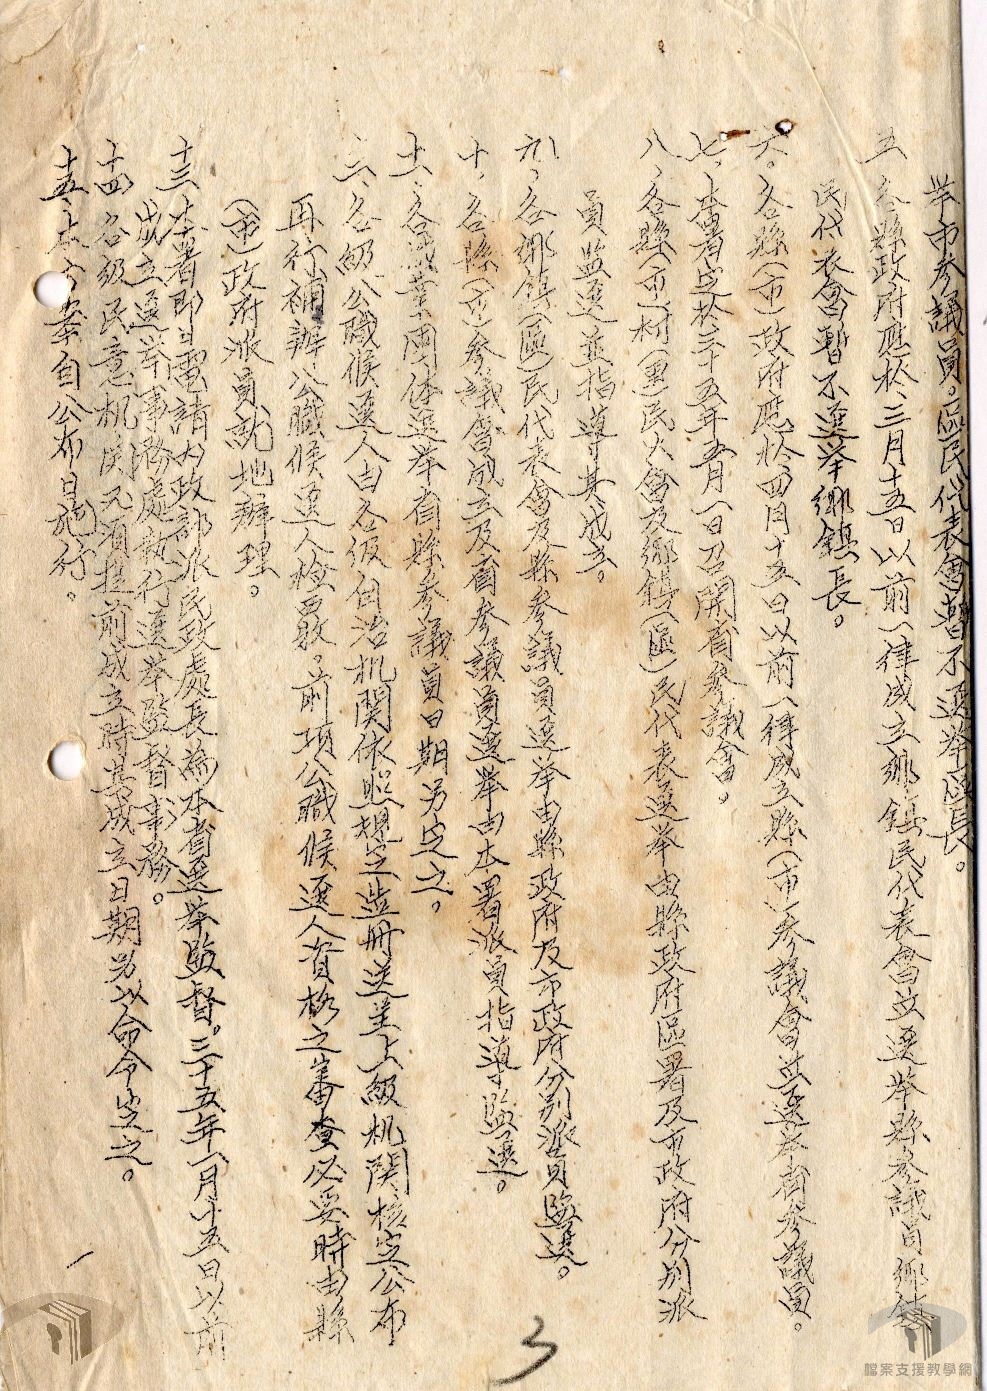 举市参議員。區民代表會暫不選举區長。
五、各縣政府應於三月十五日以前一律成立鄉鎮民代表會並選举縣参議員鄉鎮
民代表會暫不選举鄉鎮長。
六。各縣(市)政府應於四月十五日以前一律成立縣(市)参議會並選举省参議員。
七。本署定於三十五年五月一日召開省参議會。
八、各縣(市)村(里)民大會及鄉鎮(區)民代表選举由縣政府區署及市政府分别派
員監選並指導其成立。
九、各鄉鎮(區)民代表會及縣参議員選举由縣政府及市政府分别派員監選。
十。各縣(市)参議會成立及省参議員選举由本署派員指導監選。
十一、各職業團体選举省縣参議員日期另定之。
十二、各級公職候選人由各級自治机関依照規定造册送呈上級机関核定公布
再行補辦公職候選人檢覈。前項公職候選人資格之審查必要時由縣
(市)政府派員就地辦理。
十三、本署即日電請内政部派民政處長為本省選举監督。三十五年一月十五日以前
成立選举事務處執行選举監督事務。
十四、各級民意机関如有提前成立時其成立日期另以命令定之。
十五、本方案自公布日施行。
3
檔案支援教學網